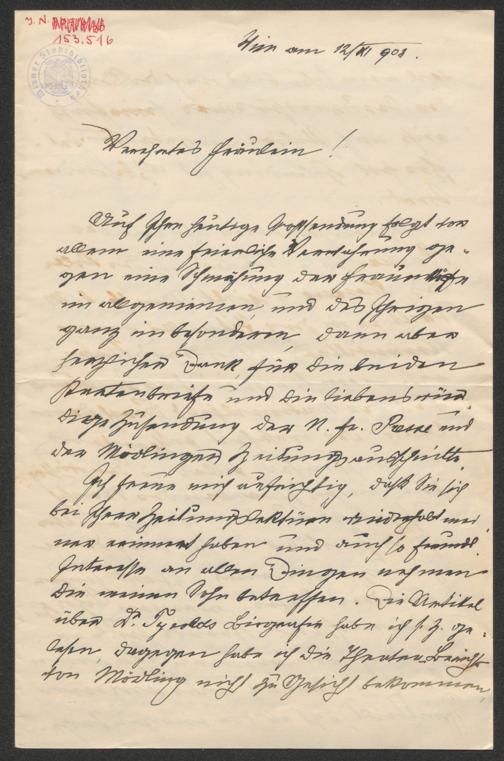 J. N.
153.516
Wiener Stadtbibliothek
Wien am 12/XI 908.
Verehrtes Fräulein!
Auf Ihre heutige Postsendung folgt vor
allem eine feierliche Verwahrung ge-
gen eine Schmähung der Frauen
im allgemeinen und des Ihrigen
ganz im besonderen, dann aber
herzlicher Dank für die beiden
Kartenbriefe und die liebenswür-
dige Zusendung der N. fr. Presse und
der Mödlinger Zeitungsausschnitte.
Ich freue mich aufrichtig, daß Sie sich
bei Ihrer Zeitungslektüre wiederholt mei-
ner erinnert haben und auch so freundl.
Interesse an allen Dingen nehmen
die meinen Sohn betreffen. Die Artikel
über Dr. Tyrolts Biografie habe ich s. Z. ge-
lesen, dagegen habe ich die Theater Berichte
von Mödling nicht zu Gesicht bekommen,